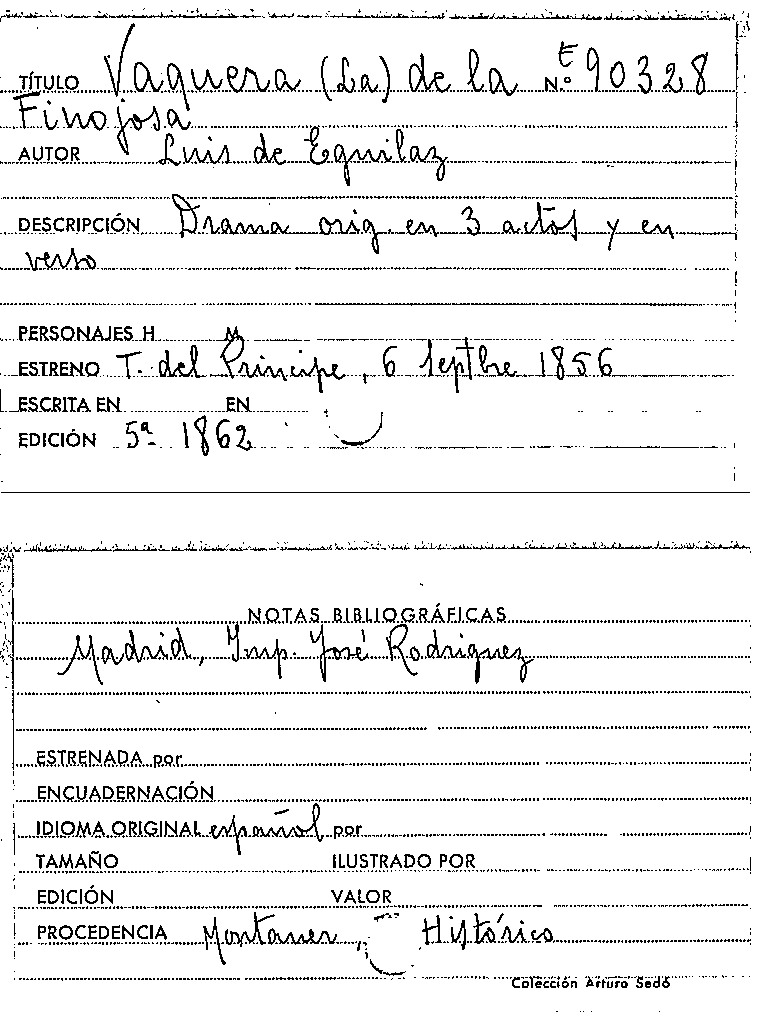 TÍTULO Vaquera (La) de la N.º E 90328
Finojosa
AUTOR Luis de Eguilaz
DESCRIPCIÓN Drama orig. en 3 actos y en
verso
PERSONAJES H M
ESTRENO T. del Principe, 6 Septbre 1856
ESCRITA EN EN
EDICIÓN 5ª 1862
NOTAS BIBLIOGRÁFICAS
Madrid, Imp. José Rodriguez
ESTRENADA por
ENCUADERNACIÓN
IDIOMA ORIGINAL español por
TAMAÑO ILUSTRADO POR
EDICIÓN VALOR
PROCEDENCIA Montaner, Histórico
Colección Arturo Sedó